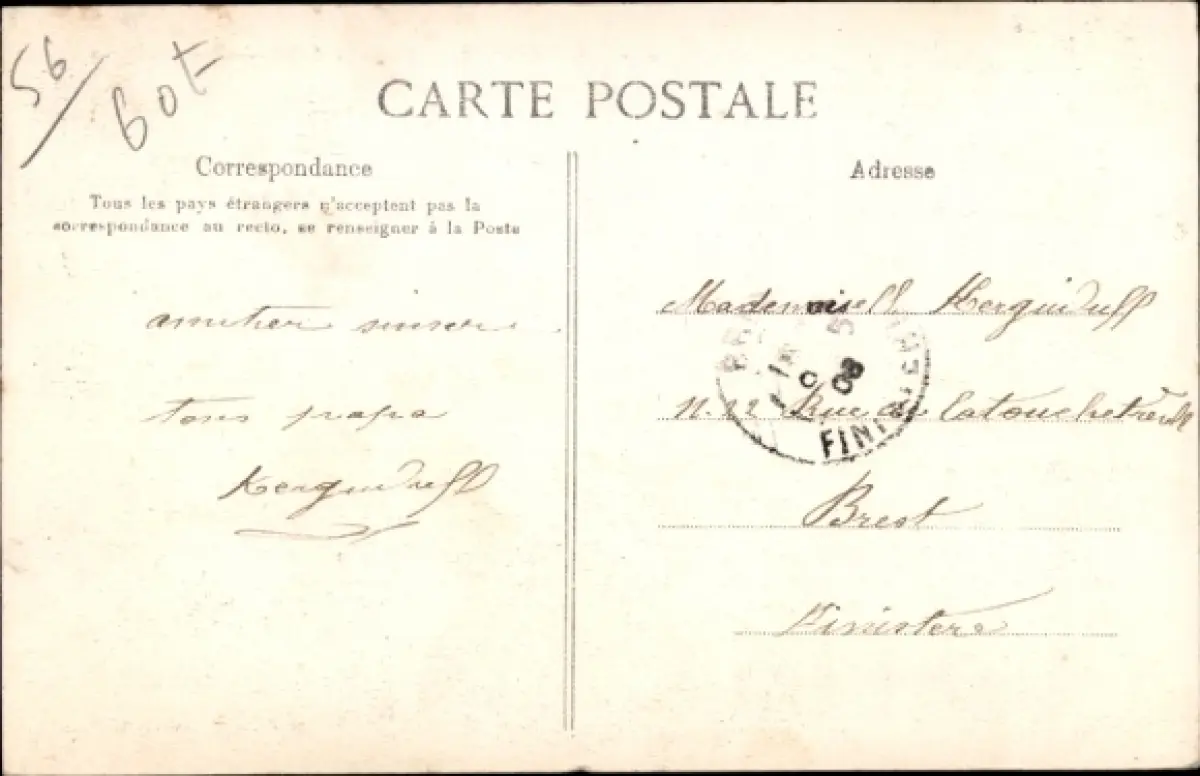 56
60F
CARTE POSTALE
Correspondance
Tous les pays étrangers n'acceptent pas la
correspondance au recto, se renseigner à la Poste
sinser
tons papa
Kerguiduff
Adresse
Mademoiselle Kerguiduff
N. 22 Rue de
Brest
Finistère
08
FINI